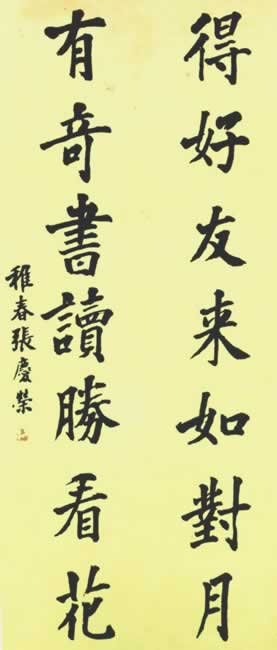 得好友来如對月
有奇書讀勝看花
稚春張慶榮